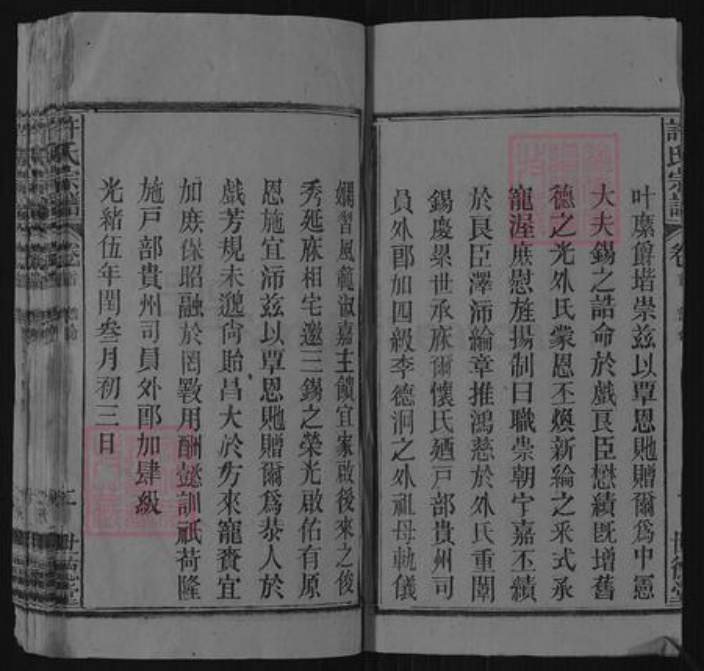 許氏宗譜
卷首 誥命
世德堂
叶縻爵堦崇茲以覃恩貤贈爾爲中憲
大夫錫之誥命於戲良臣懋績旣增舊
德之光外氏蒙恩丕煥新綸之釆式承
寵渥庶慰旌揚制曰職崇朝宁嘉丕績
於良臣澤沛綸章推鴻慈於外氏重闈
錫慶曩世承庥爾懷氏廼戸部貴州司
員外郎加四級李德泂之外祖母軌儀
嫻習風範淑嘉主饋宜家啟後來之俊
秀延庥相宅邀三錫之榮光啟佑有原
恩施宜沛茲以覃恩貤贈爾爲恭人於
戲芳規未邈尙貽昌大於方來寵賚宜
加庶保昭融於罔斁用酬懿訓祇荷隆
施戸部貴州司員外郎加肆級
光緒伍年閏叁月初三日
許氏宗譜
世德堂